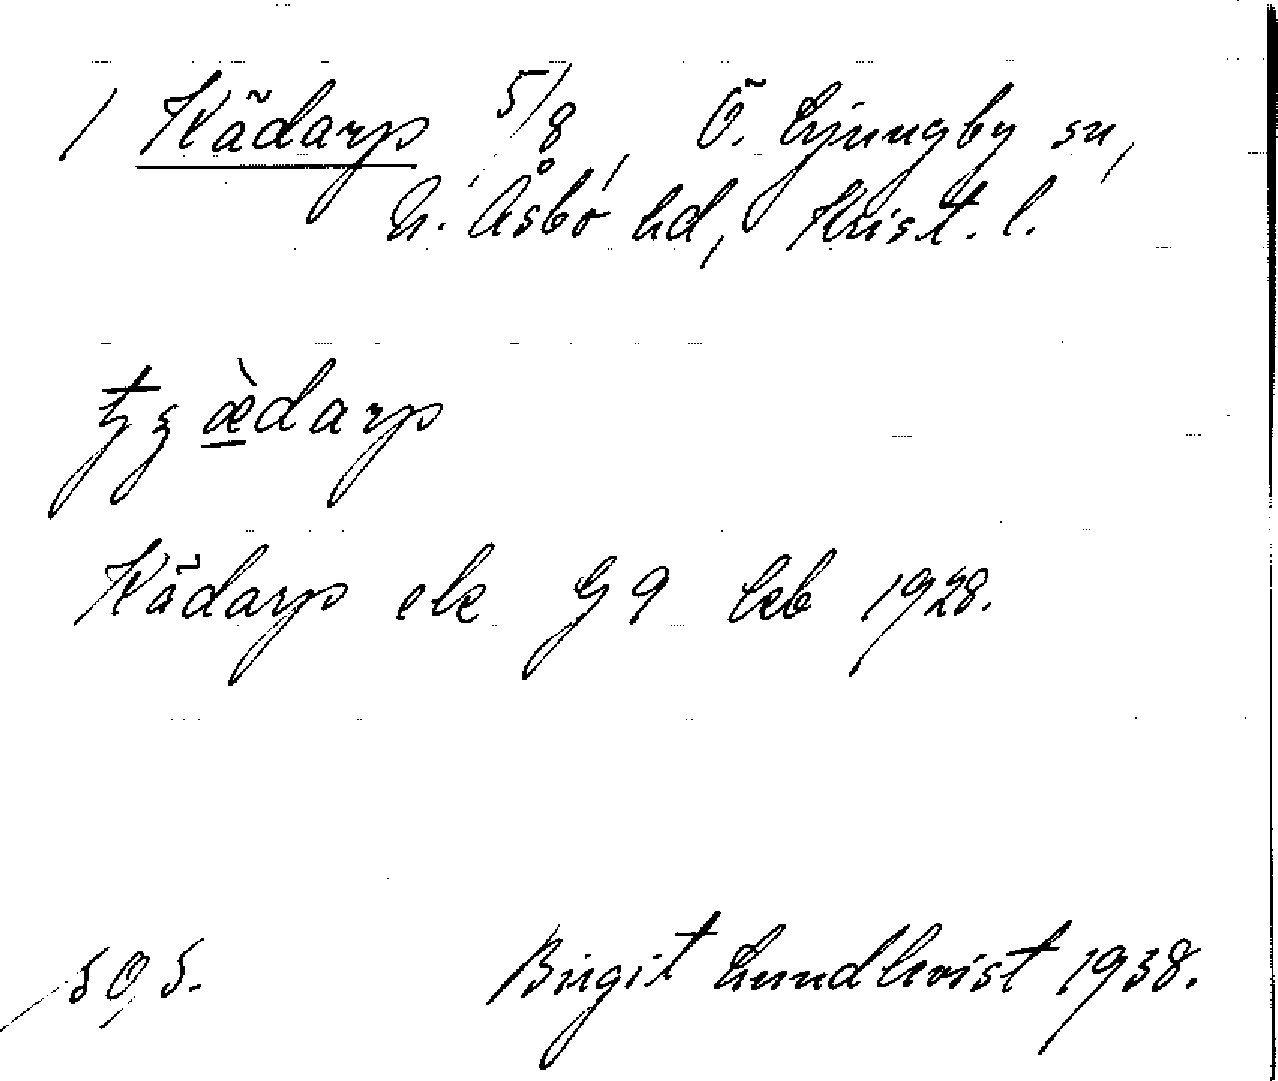 1 Kädarp 5/8, Ö. Ljungby sn,
N. Åsbo hd, Krist. l.
ædarp
Kädarp ek G9 Leb 1928.
50,5. Birgit Lundkvist 1938.